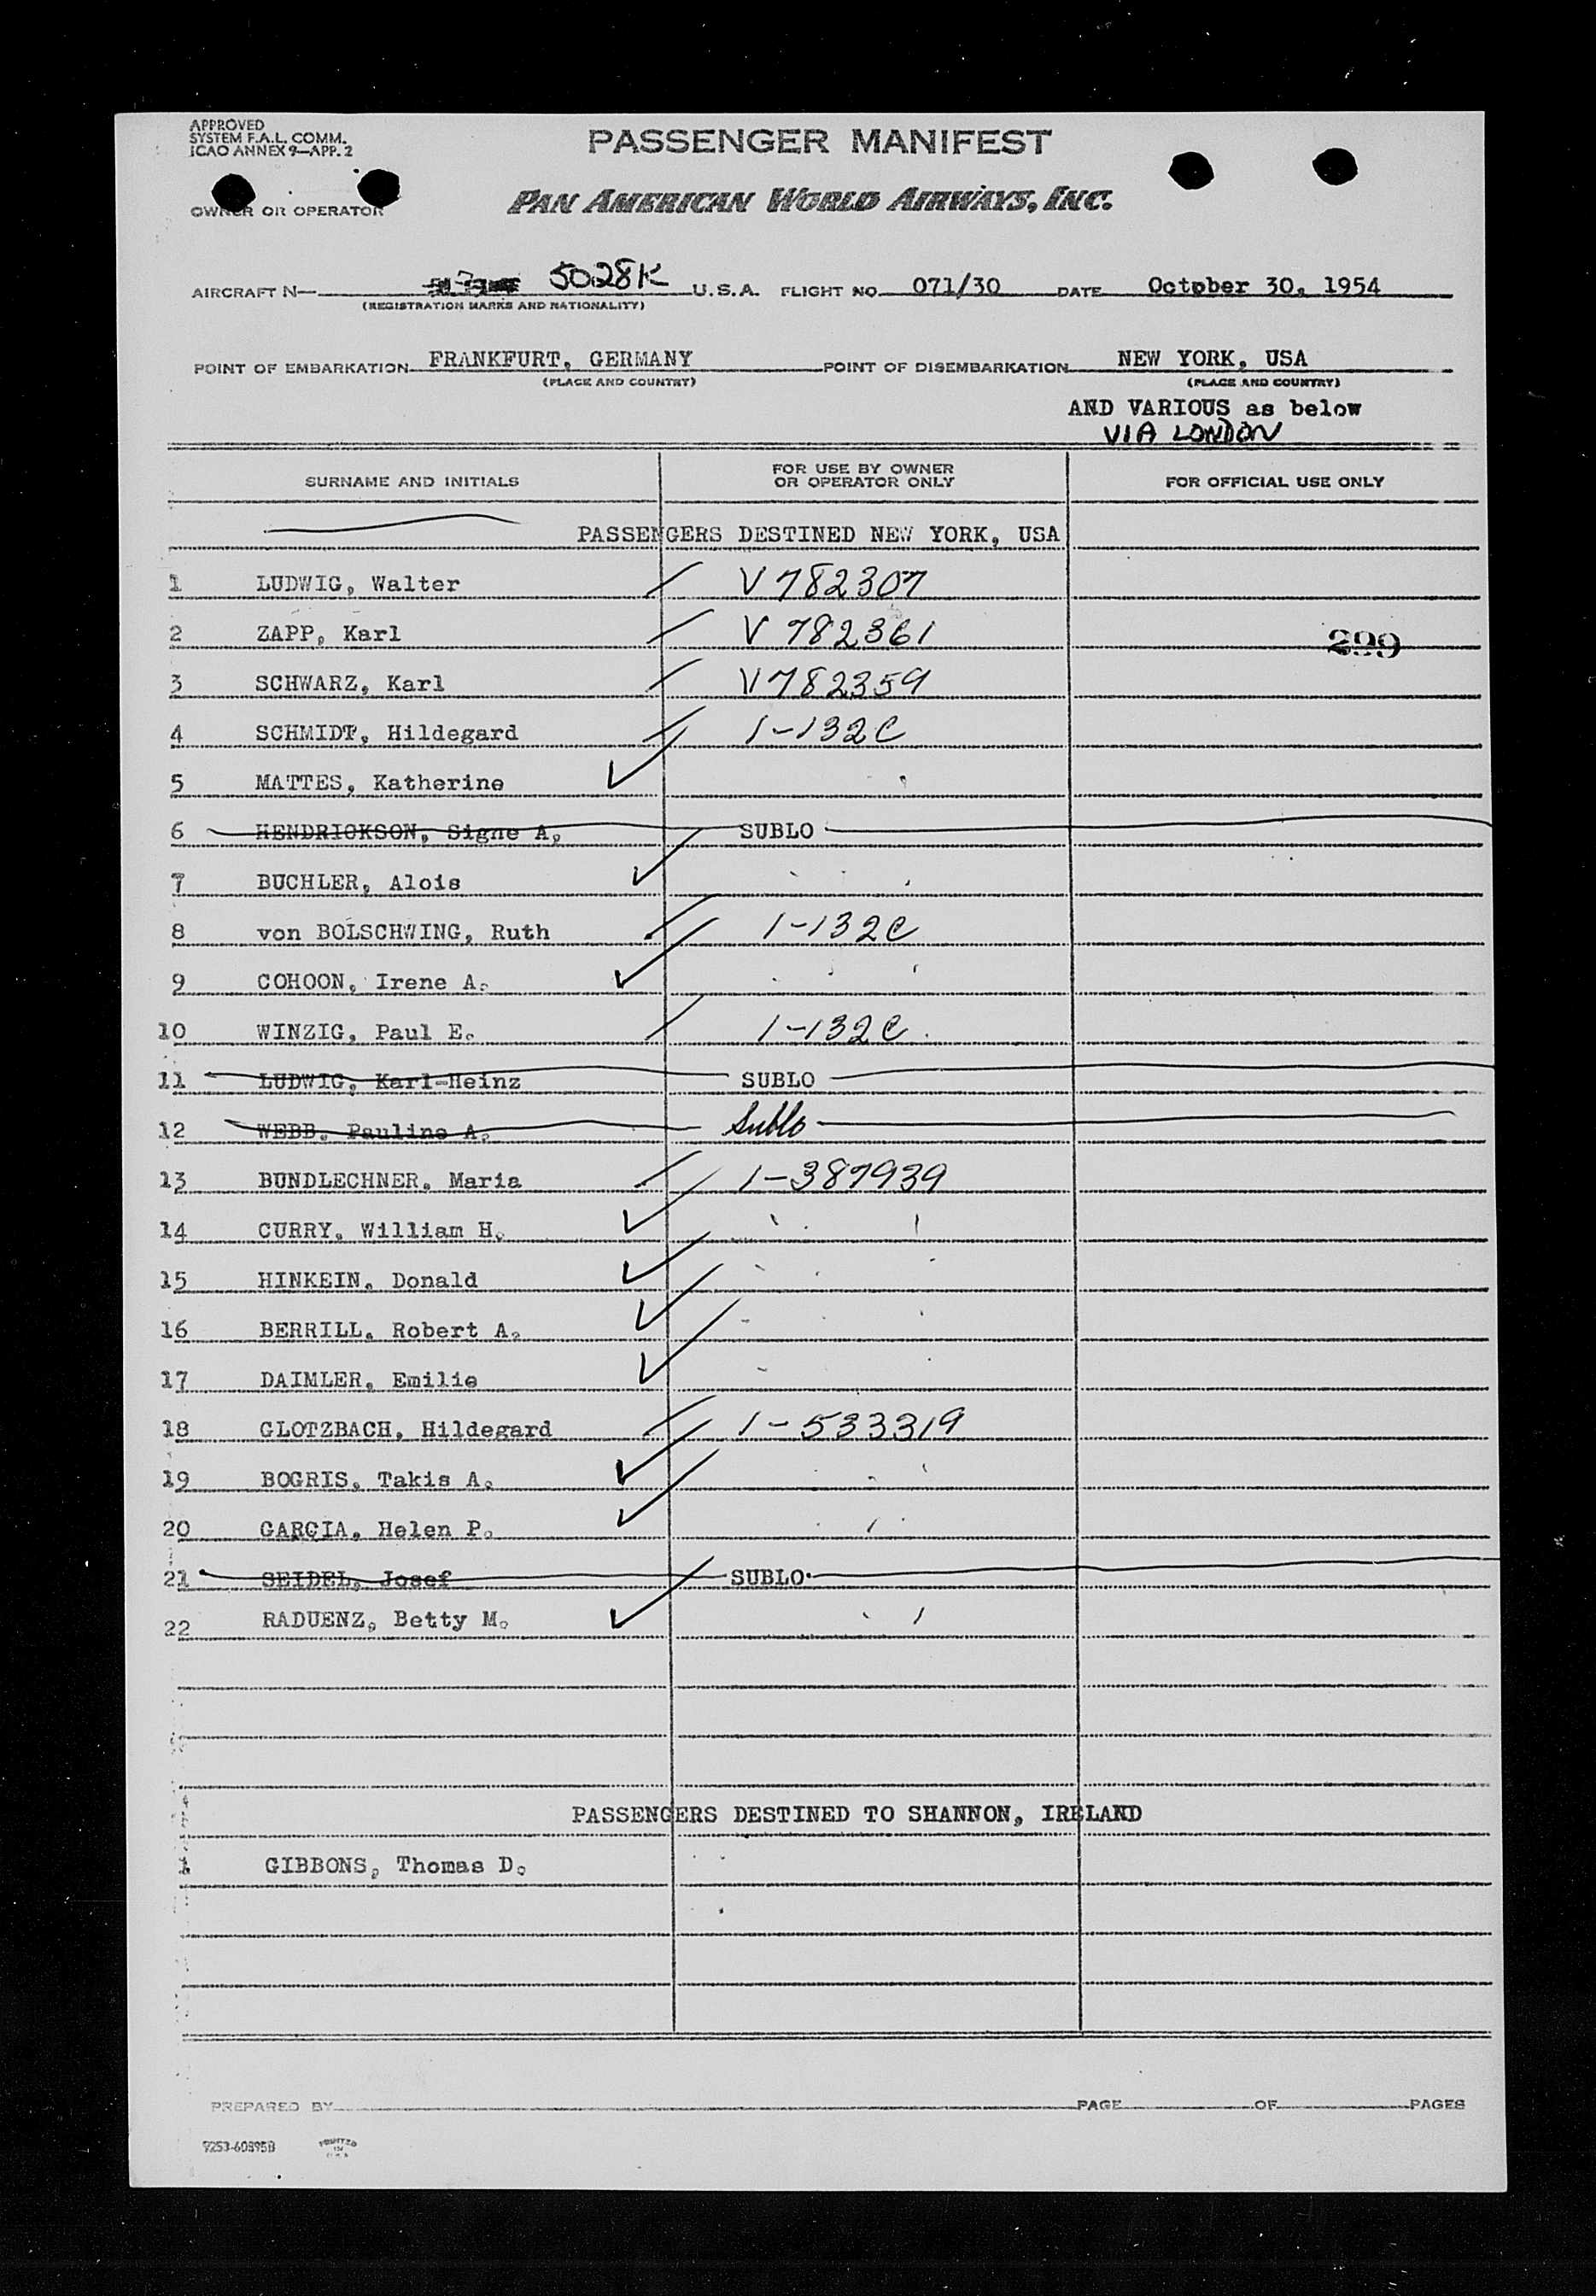 APPROVED
SYSTEM F.A.L. COMM.
ICAO ANNEX 9—APP. 2
PASSENGER MANIFEST
OWNER OR OPERATOR
PAN AMERICAN WORLD AIRWAYS, INC.
AIRCRAFT N— 5028K U.S.A. FLIGHT NO. 071/30 DATE October 30, 1954
(REGISTRATION MARKS AND NATIONALITY)
POINT OF EMBARKATION FRANKFURT, GERMANY POINT OF DISEMBARKATION NEW YORK, USA
(PLACE AND COUNTRY) (PLACE AND COUNTRY)
AND VARIOUS as below
VIA LONDON
SURNAME AND INITIALS FOR USE BY OWNER OR OPERATOR ONLY FOR OFFICIAL USE ONLY
PASSENGERS DESTINED NEW YORK, USA
1 LUDWIG, Walter V782307
2 ZAPP, Karl V 782361 299
3 SCHWARZ, Karl V782359
4 SCHMIDT, Hildegard 1-132C
5 MATTES, Katherine
6 HENDRICKSON, Signe A. SUBLO
7 BUCHLER, Alois
8 von BOLSCHWING, Ruth 1-132C
9 COHOON, Irene A.
10 WINZIG, Paul E. 1-132C
11 LUDWIG, Karl-Heinz SUBLO
12 WEBB, Pauline A. Sublo
13 BUNDLECHNER, Maria 1-387939
14 CURRY, William H.
15 HINKEIN, Donald
16 BERRILL, Robert A.
17 DAIMLER, Emilie
18 GLOTZBACH, Hildegard 1-533319
19 BOGRIS, Takis A.
20 GARCIA, Helen P.
21 SEIDEL, Josef SUBLO
22 RADUENZ, Betty M.
PASSENGERS DESTINED TO SHANNON, IRELAND
1 GIBBONS, Thomas D.
PREPARED BY PAGE OF PAGES
9253-60895B PRINTED IN U.S.A.